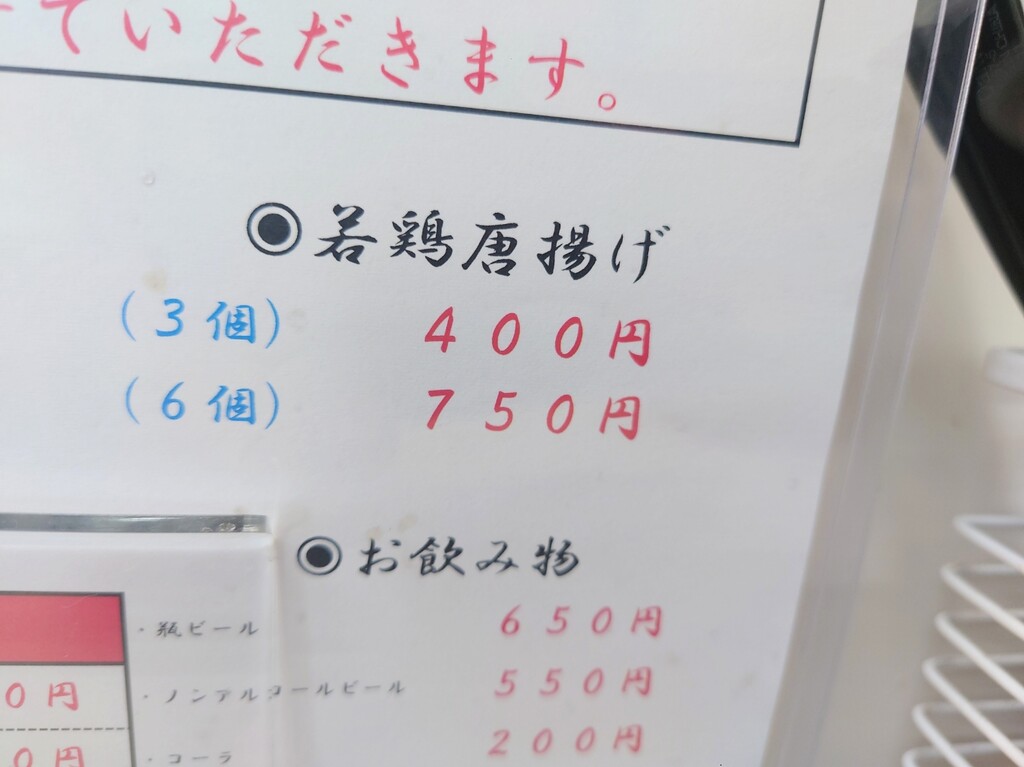 ていただきます。
◉若鶏唐揚げ
(3個) 400円
(6個) 750円
◉お飲み物
・瓶ビール 650円
・ノンアルコールビール 550円
・コーラ 200円
0円
0円